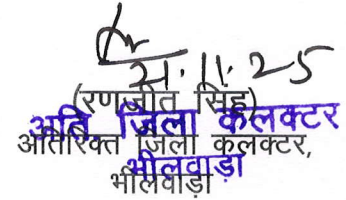 21.11.25
(रणजीत सिंह)
अति. जिला कलक्टर
अतिरिक्त जिला कलक्टर,
भीलवाड़ा
भीलवाड़ा